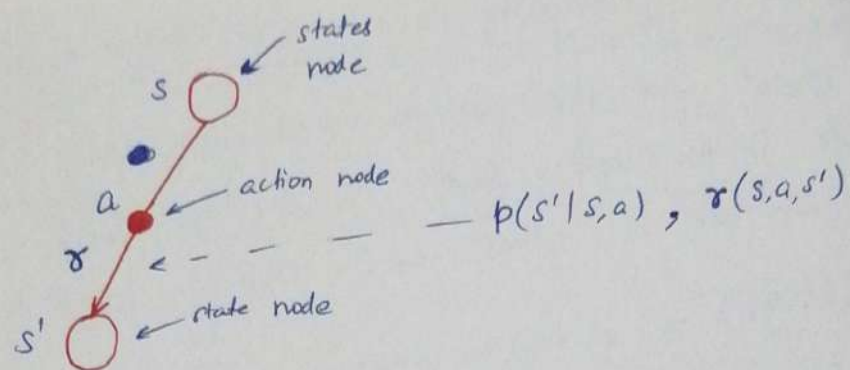 states
node
S
a
action node
p(s'|s,a) , r(s,a,s')
r
state node
s'